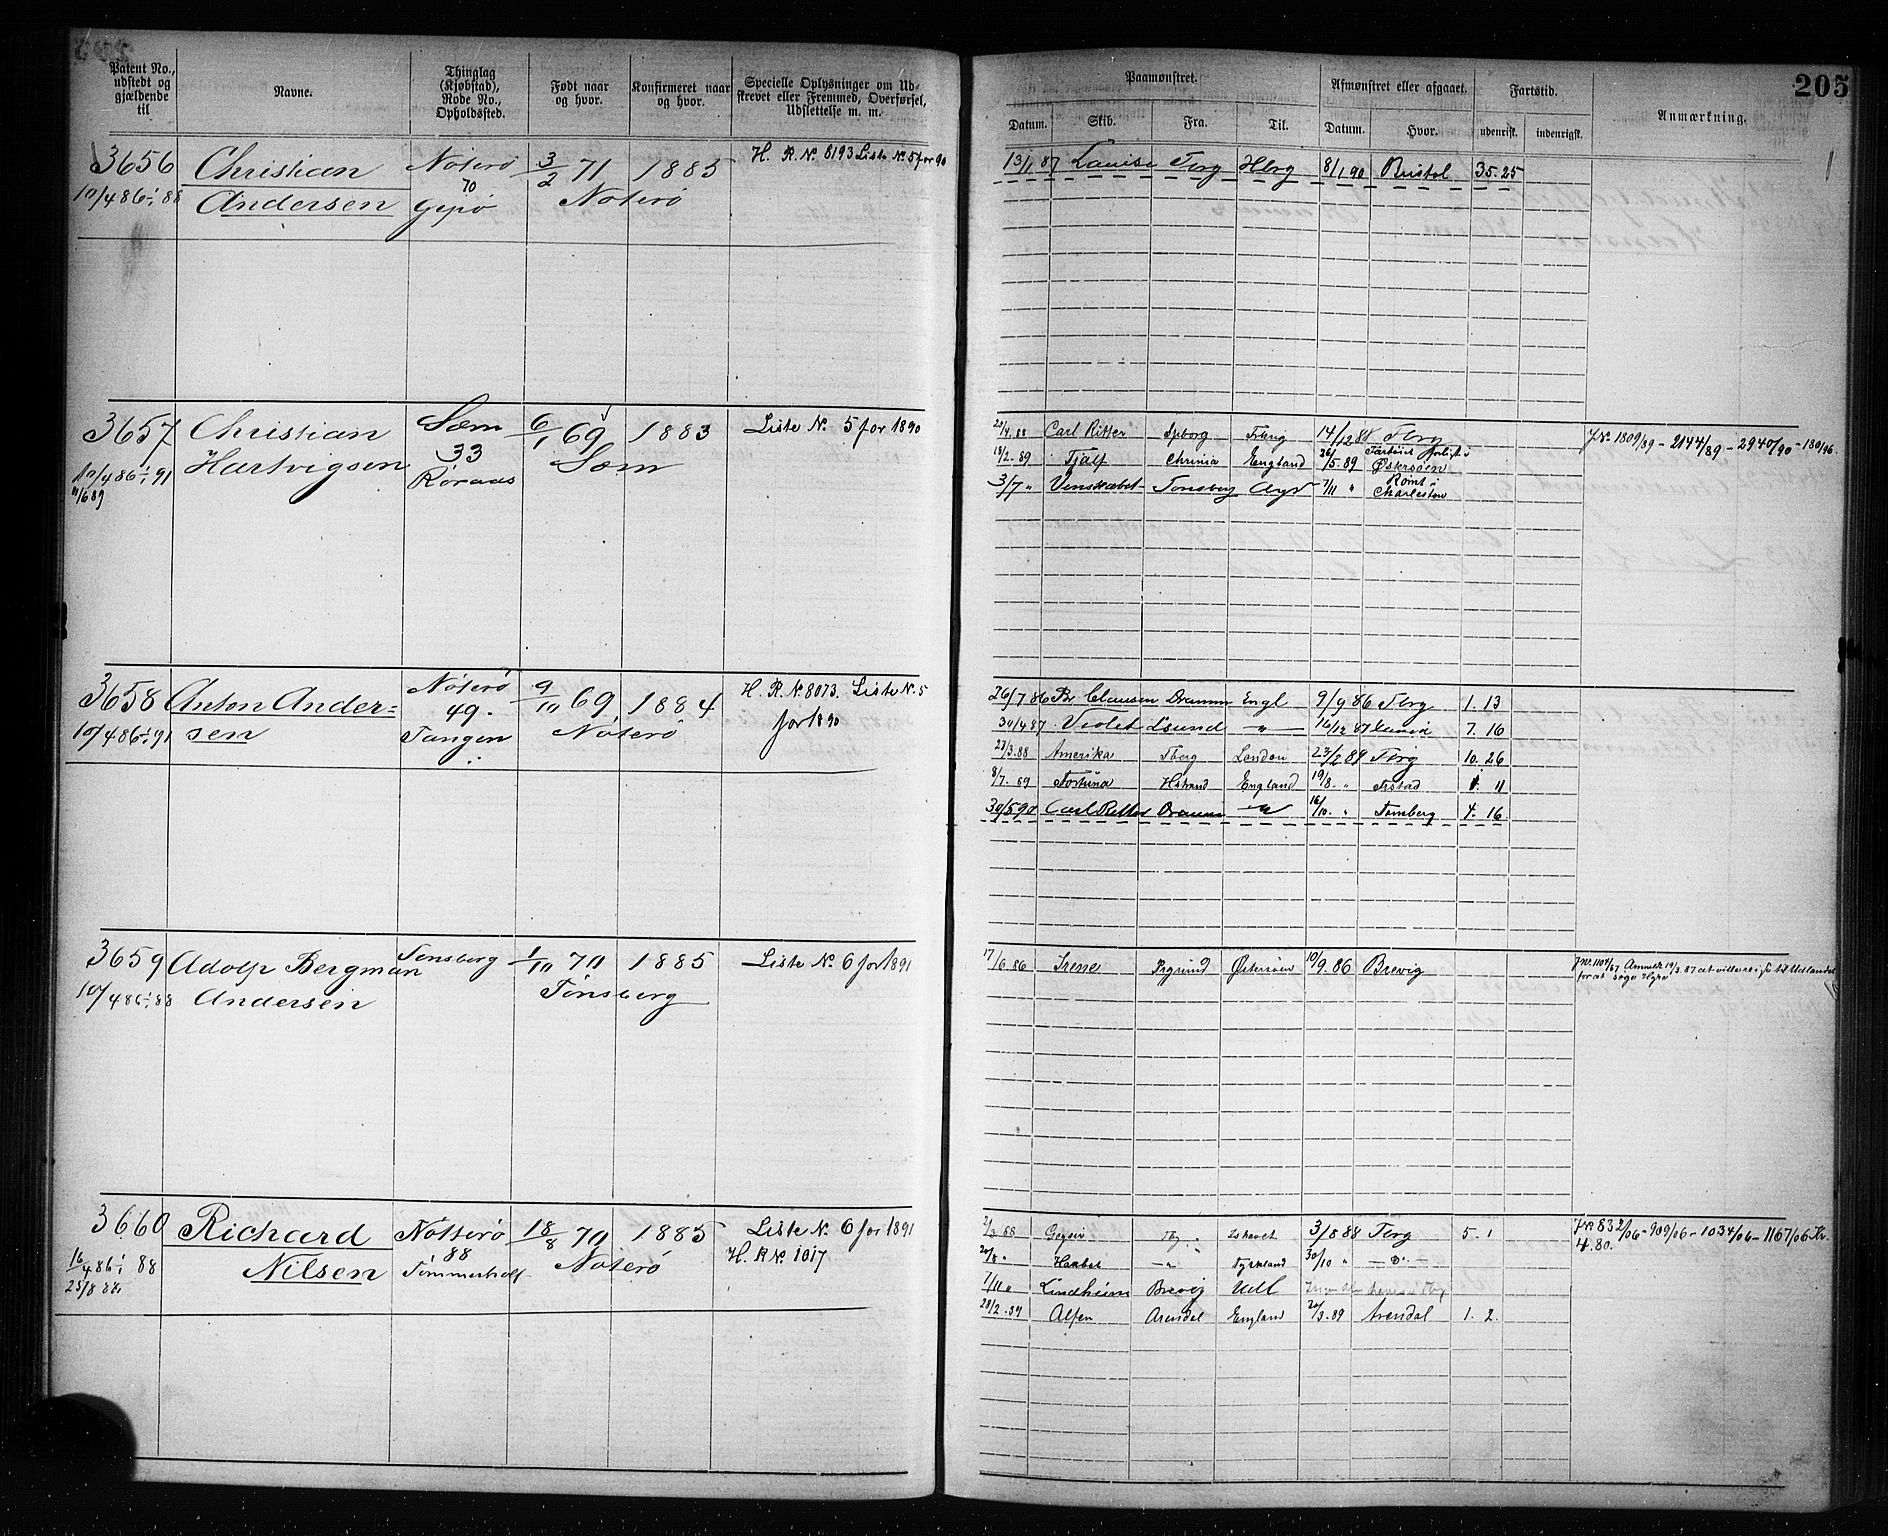 205
Patent No., udstedt og gjældende til
Navne.
Thinglag (Kjøbstad), Rode No., Opholdssted.
Født naar og hvor.
Konfirmeret naar og hvor.
Specielle Oplysninger om Udskrevet eller Fremmed, Overførsel, Udslettelse m. m.
Paamønstret.
Afmønstret eller afgaaet.
Fartstid.
Anmærkning.
Datum. Skib. Fra. Til. Datum. Hvor. udenrikst. indenrigst.
3656 Christian Nøterø 3/2 71 1885 H. R. No. 8193 Liste No. 5 for 90
10/4 86 ÷ 88 Andersen 70 Nøterø
13/1 87 Louise Tbrg Hbrg 8/1 90 Bristol 35. 25
3657 Christian Sæm 6/1 69 1883 Liste No. 5 for 1890
10/4 86 ÷ 91 Hartvigsen 33 Sæm
11/6 89 Røraas
Carl Ritter 14/12 88 Tbrg Jr. 1809/89 - 2144/89 - 2940/90 - 180/96.
18/2. 89 Tjalf Chrinia England 26/5. 89 Østersøen
3/7 " Venskabet Tonsberg 7/11 " Rømt i Charleston
3658 Anton Ander= Nøterø 9/10 69 1884 H. R. No. 8073. Liste No. 5
10/4 86 ÷ 91 sen 49. Nøterø for 1890
Tangen
26/7 86 Br. Clausen Dramm Engl 9/9 86 Tbrg 1. 13
30/4 87 Violet Lsund — " — 16/12 87 7. 16
23/3. 88 Amerika Tberg London 23/2 89 Tbrg 10. 26
8/7. 89 Fortuna England 19/8. " Frstad 11
30/5 90 Carl Ritter Dramm 16/10. " Tønsberg 4. 16
3659 Adolf Bergman Tønsberg 1/10 70 1885 Liste No. 6 for 1891
10/4 86 ÷ 88 Andersen Tønsberg
17/6. 86 Irene Østersøen 10/9. 86 Brevig
3660 Richard Nøtterø 18/8 70 1885 Liste No. 6 for 1891
16/4 86 ÷ 88 Nilsen 88 Nøterø H. R No. 1017
25/8 88
2/3 88 Geysir Ishavet 3/8 88 Tbrg 5. 1 Jr. 832/06 - 909/06 - 1034/06 - 1167/06 Kr. 4.80.
20/8 " Haabet — " — 30/10 "
7/11 " Lindheim Brevig Udl
28/2. 89 Alfen Arendal England 20/3. 89 Arendal 1. 2.